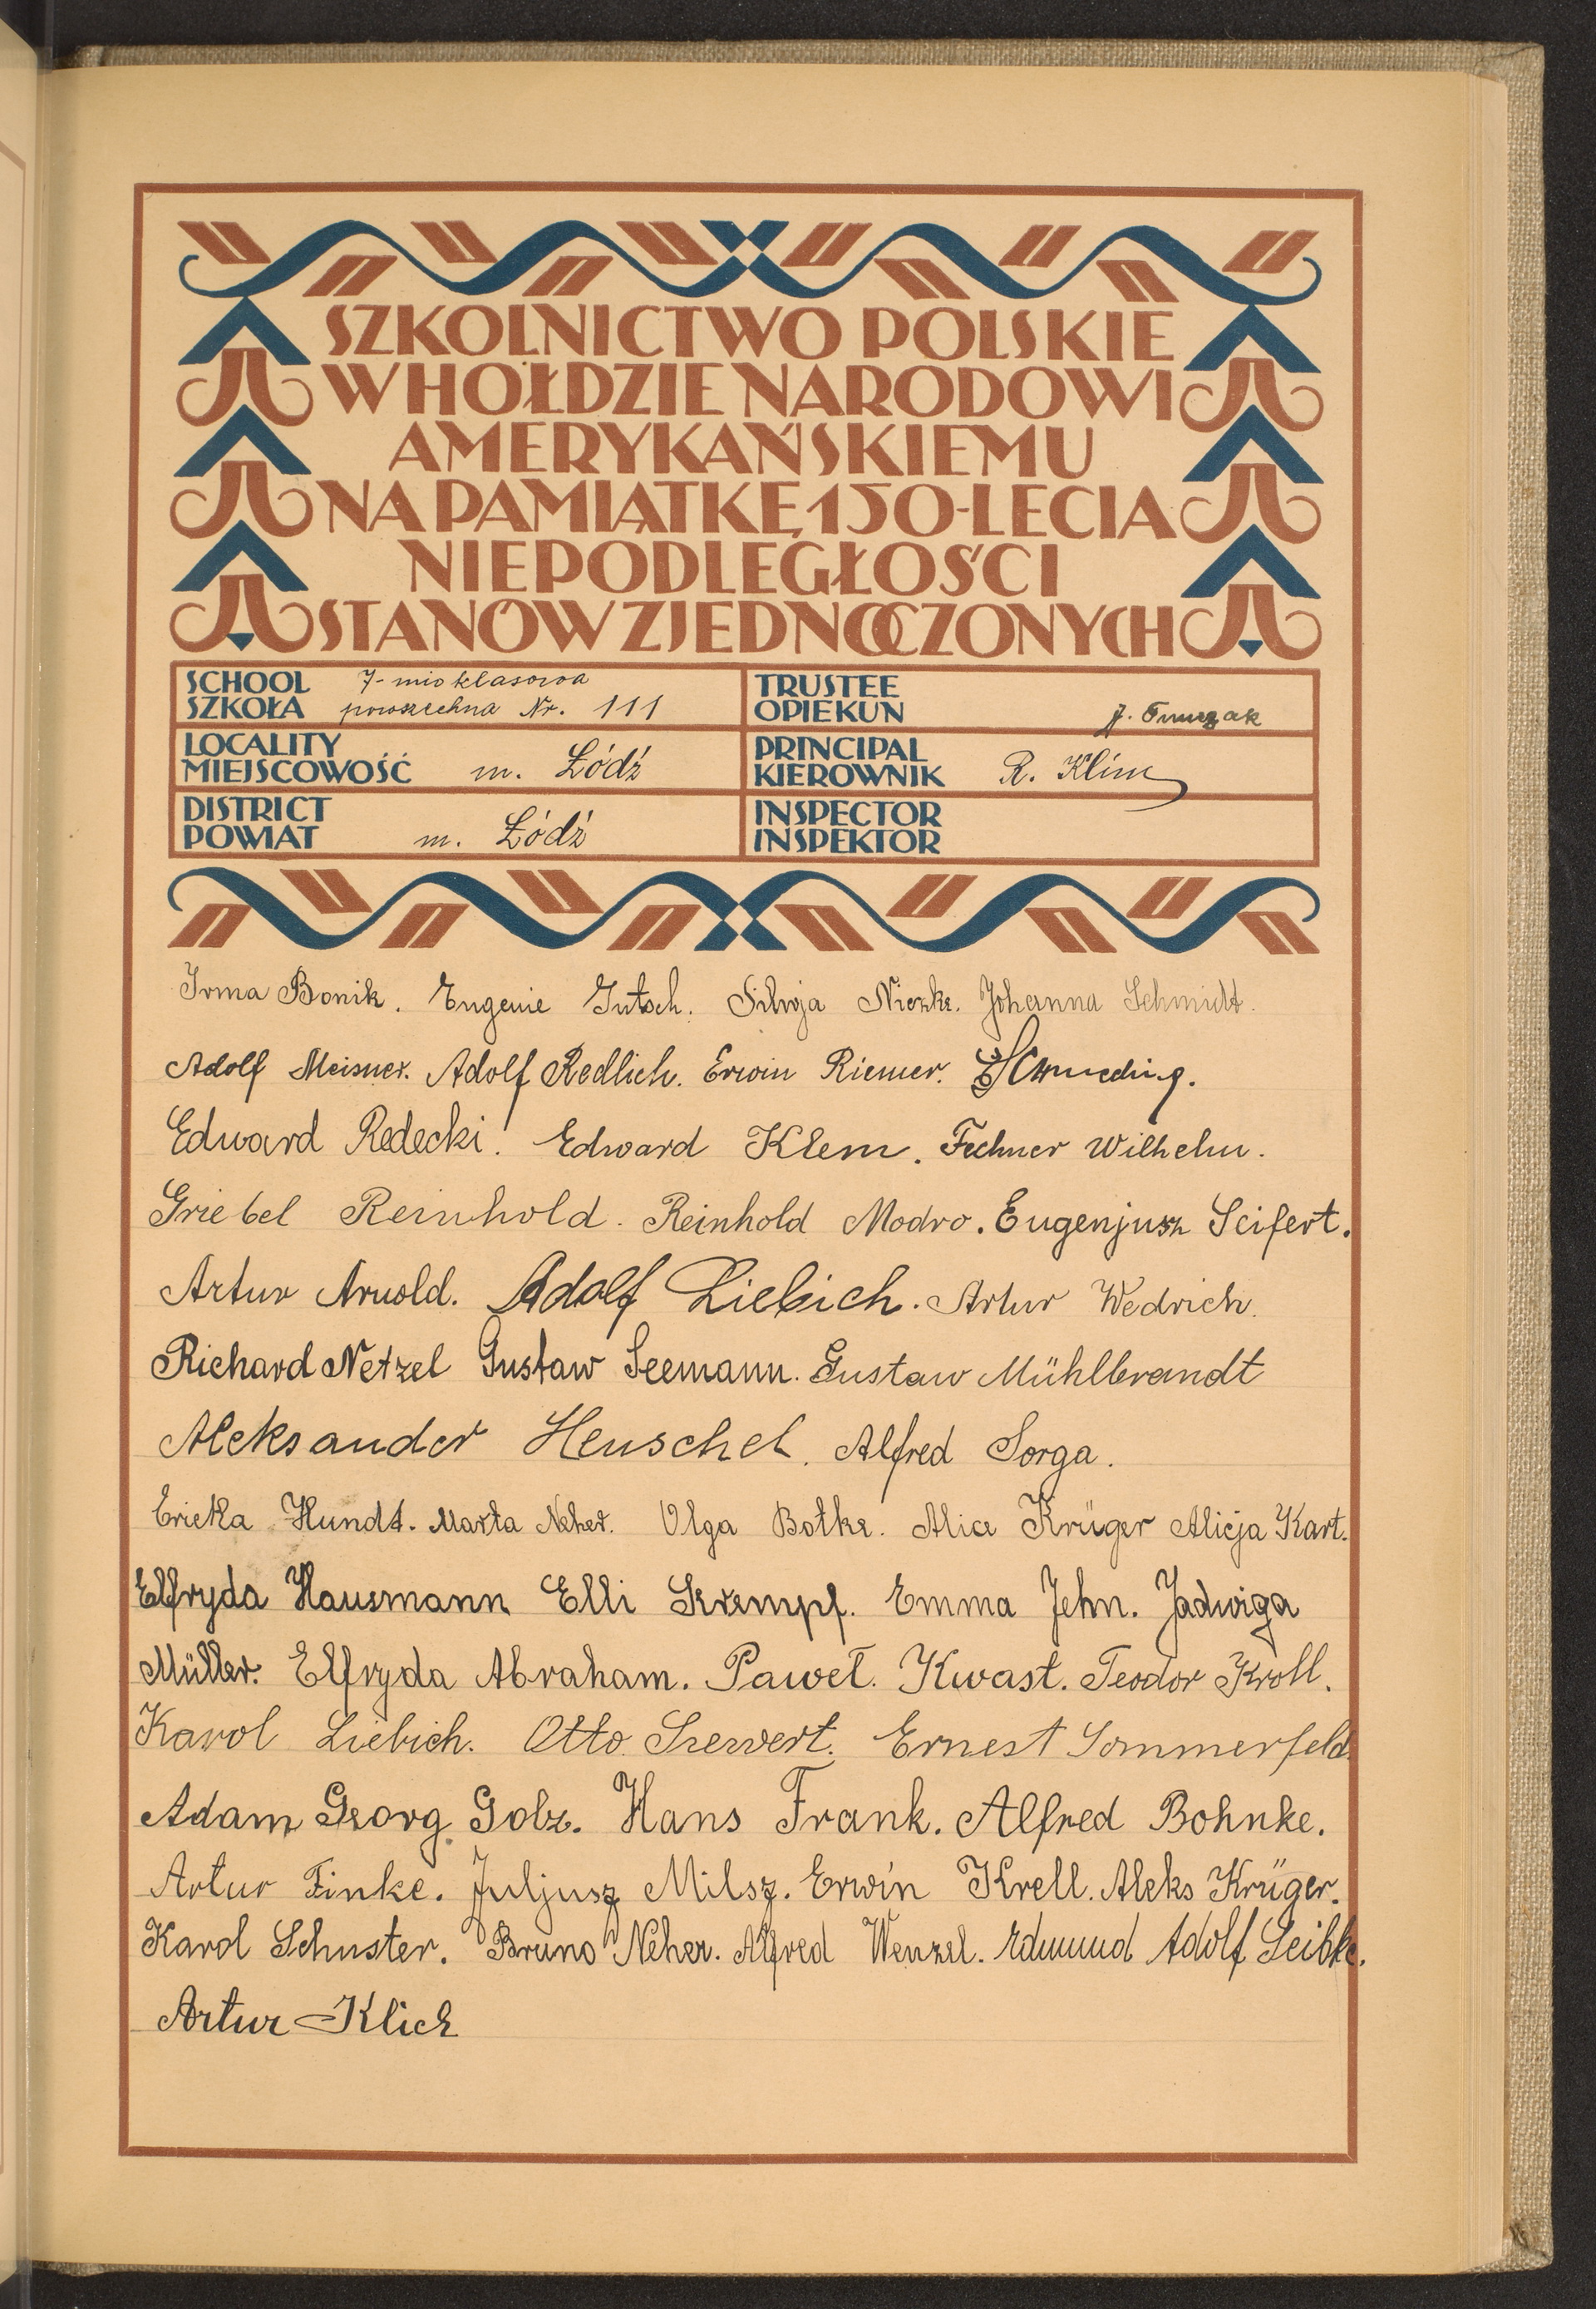 SZKOLNICTWO POLSKIE
W HOŁDZIE NARODOWI
AMERYKAŃSKIEMU
NA PAMIĄTKĘ 150-LECIA
NIEPODLEGŁOŚCI
STANÓW ZJEDNOCZONYCH
SCHOOL 7-mio klasowa
SZKOŁA powszechna Nr. 111
TRUSTEE
OPIEKUN J.
LOCALITY
MIEJSCOWOŚĆ m. Łódź
PRINCIPAL
KIEROWNIK R. Klim
DISTRICT
POWIAT m. Łódź
INSPECTOR
INSPEKTOR
Irma Bonik. Eugenie Gutsch. Silvja Niczke. Johanna Schmidt.
Adolf Meisner. Adolf Redlich. Erwin Riemer.
Edward Redecki. Edward Klem. Fechner Wilhelm.
Griebel Reinhold. Reinhold Modro. Eugenjusz Seifert.
Artur Arnold. Adolf Liebich. Artur Wedrich.
Richard Netzel Gustaw Seemann. Gustaw Mühlbrandt
Aleksander Henschel. Alfred Sorga.
Ericka Hundt. Marta Neher. Olga Botke. Alice Krüger Alicja Kart.
Elfryda Hausmann Elli Krempf. Emma Jehn. Jadwiga
Müller. Elfryda Abraham. Paweł. Kwast. Teodor Kroll.
Karol Liebich. Otto Szewert. Ernest Sommerfeld
Adam Georg Golz. Hans Frank. Alfred Bohnke.
Artur Finke. Juljusz Milsz. Erwin Krell. Aleks Krüger.
Karol Schuster. Bruno Neher. Alfred Wenzel. Edmund Adolf Leibke.
Artur Klich